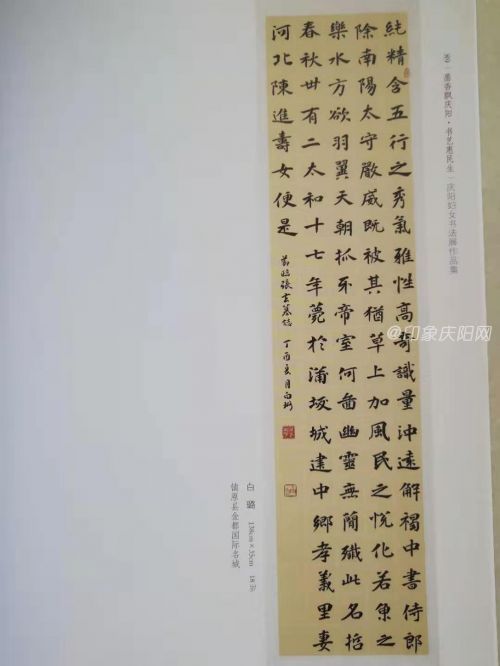 墨香飘庆阳·书艺惠民生 | 庆阳妇女书法展作品集
純精含五行之秀氣雅性高奇識量沖遠解褐中書侍郎
除南陽太守嚴威既被其猶草上加風民之悅化若魚之
樂水方欲羽翼天朝抓牙帝室何啚幽靈無簡殲此名哲
春秋卅有二太和十七年薨於蒲坂城建中鄉孝義里妻
河北陳進壽女便是
張玄墓誌 丁酉亥月白璐
白璐 138cm×35cm
镇原县金都国际名城
@印象庆阳网